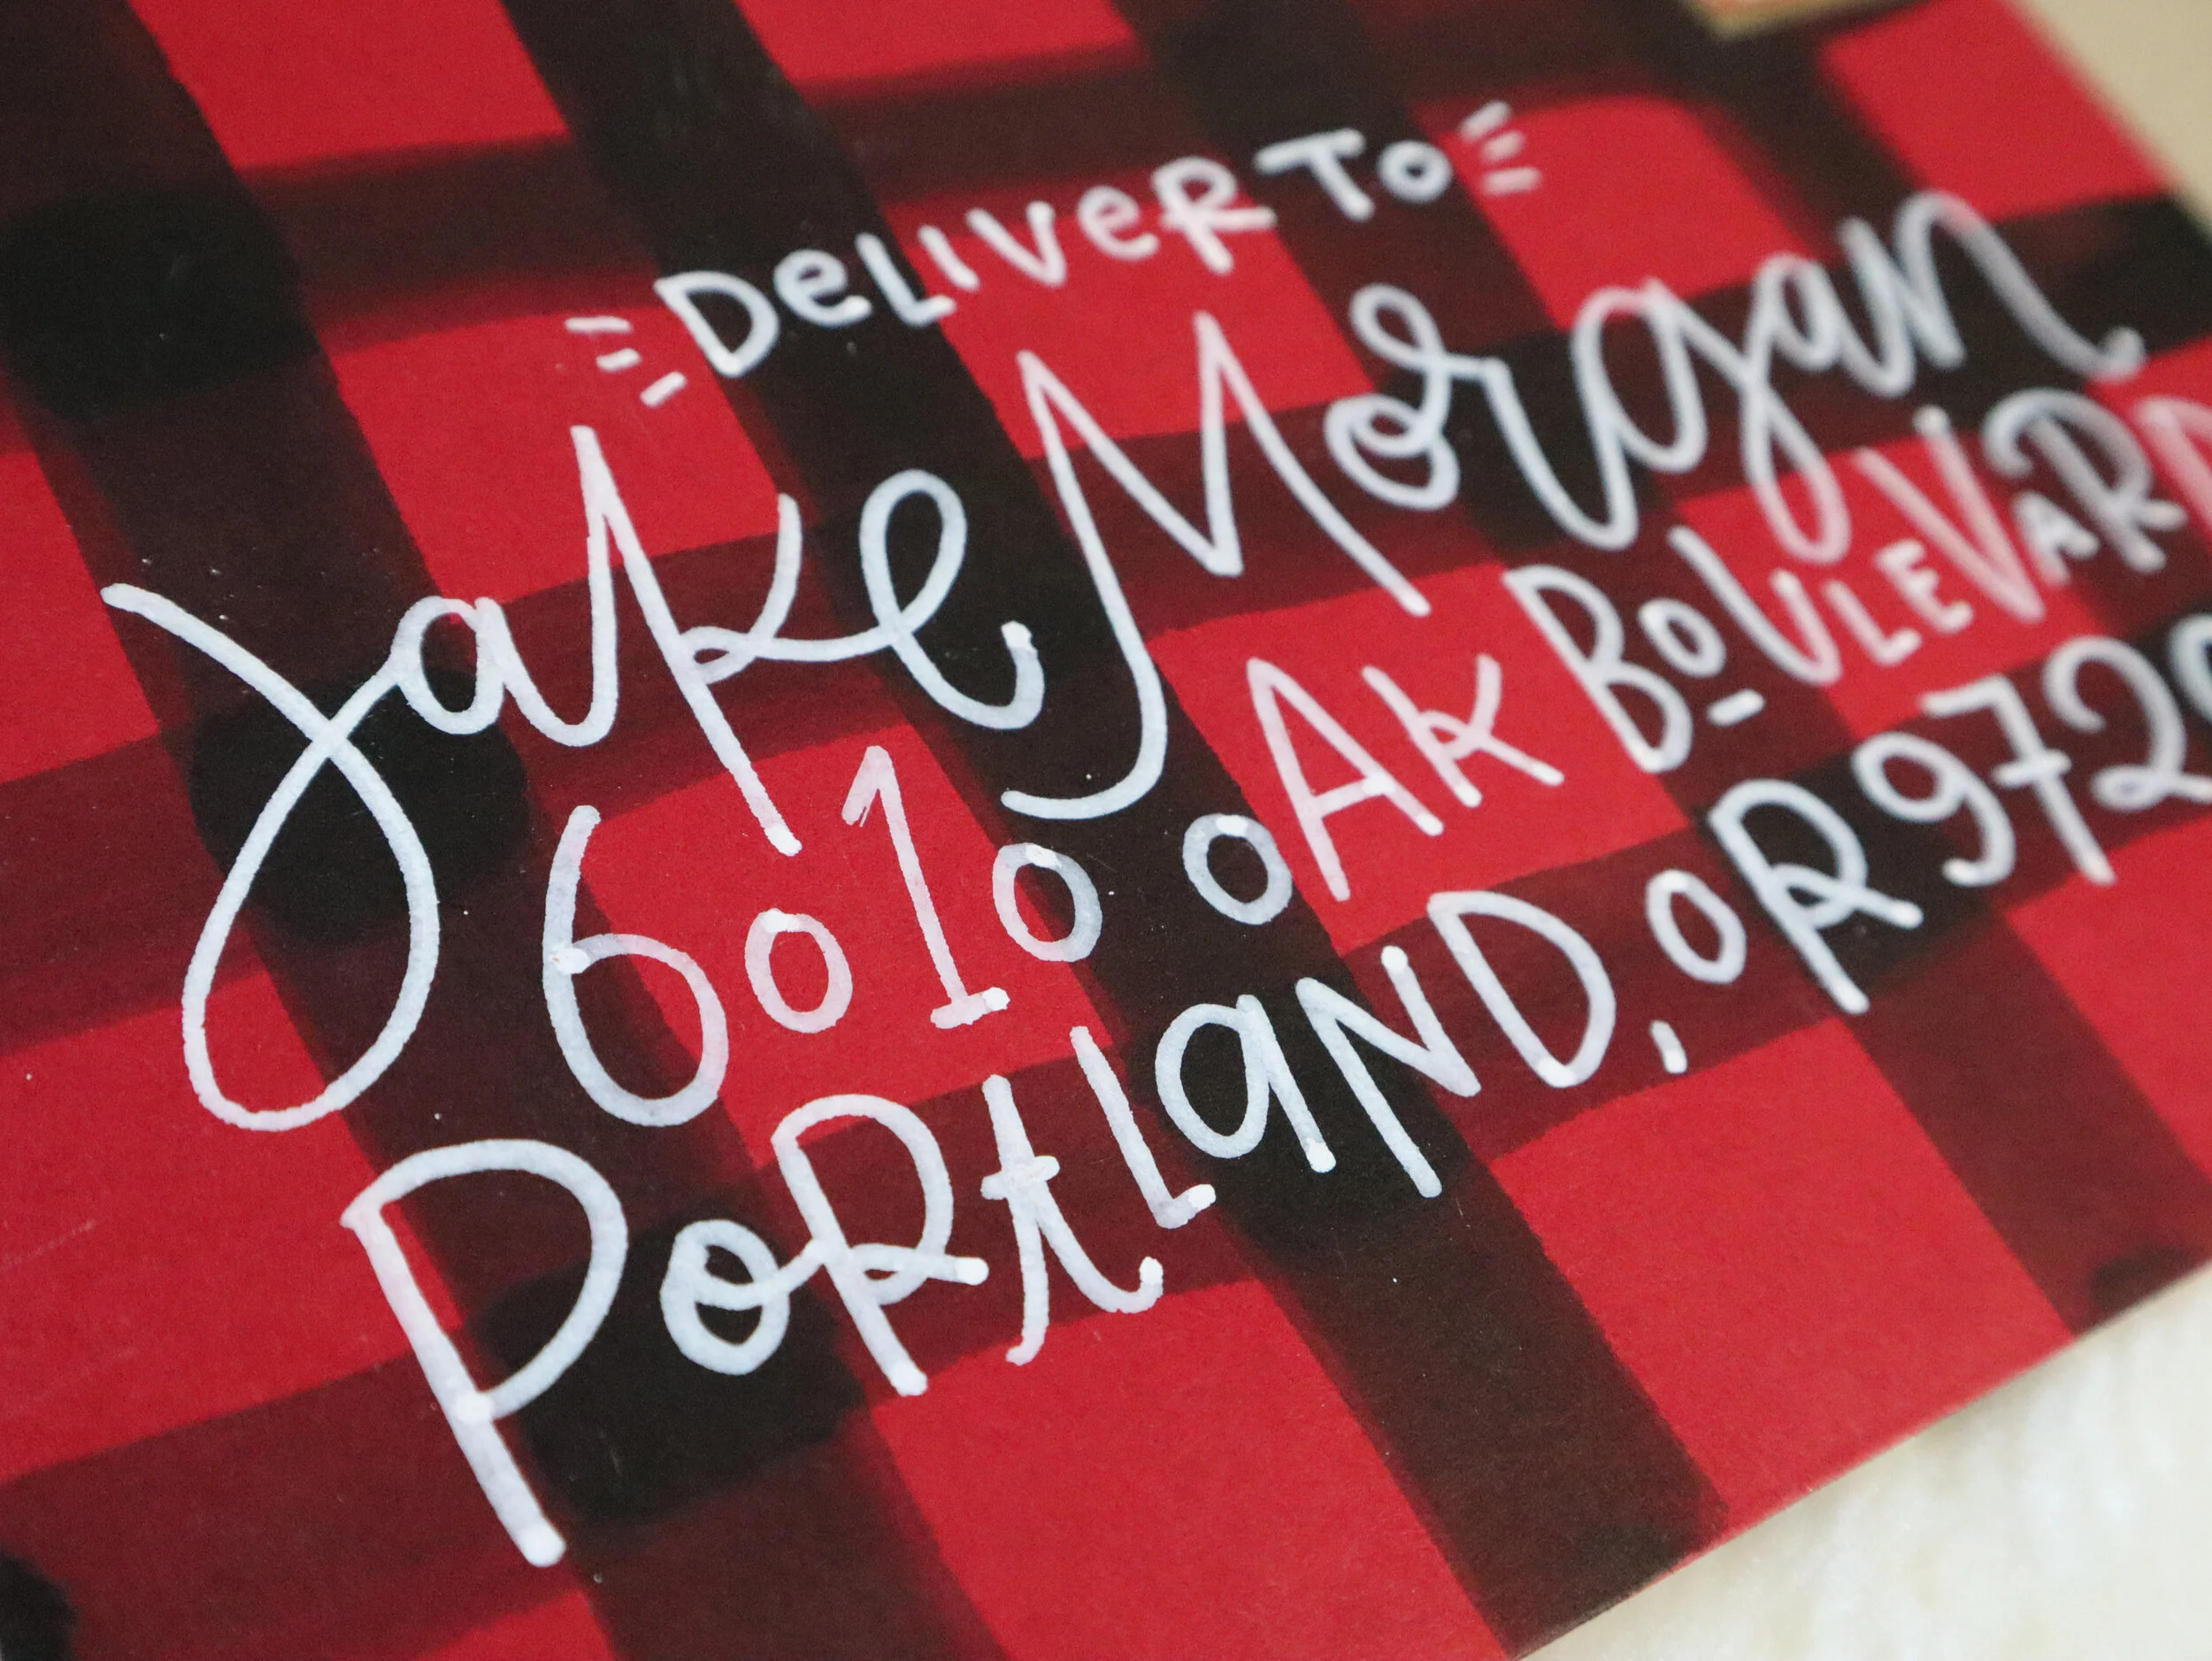 DeLIVeR TO
Jake Morgan
6010 OAK BOULEVARD
PORtLaND, OR 972